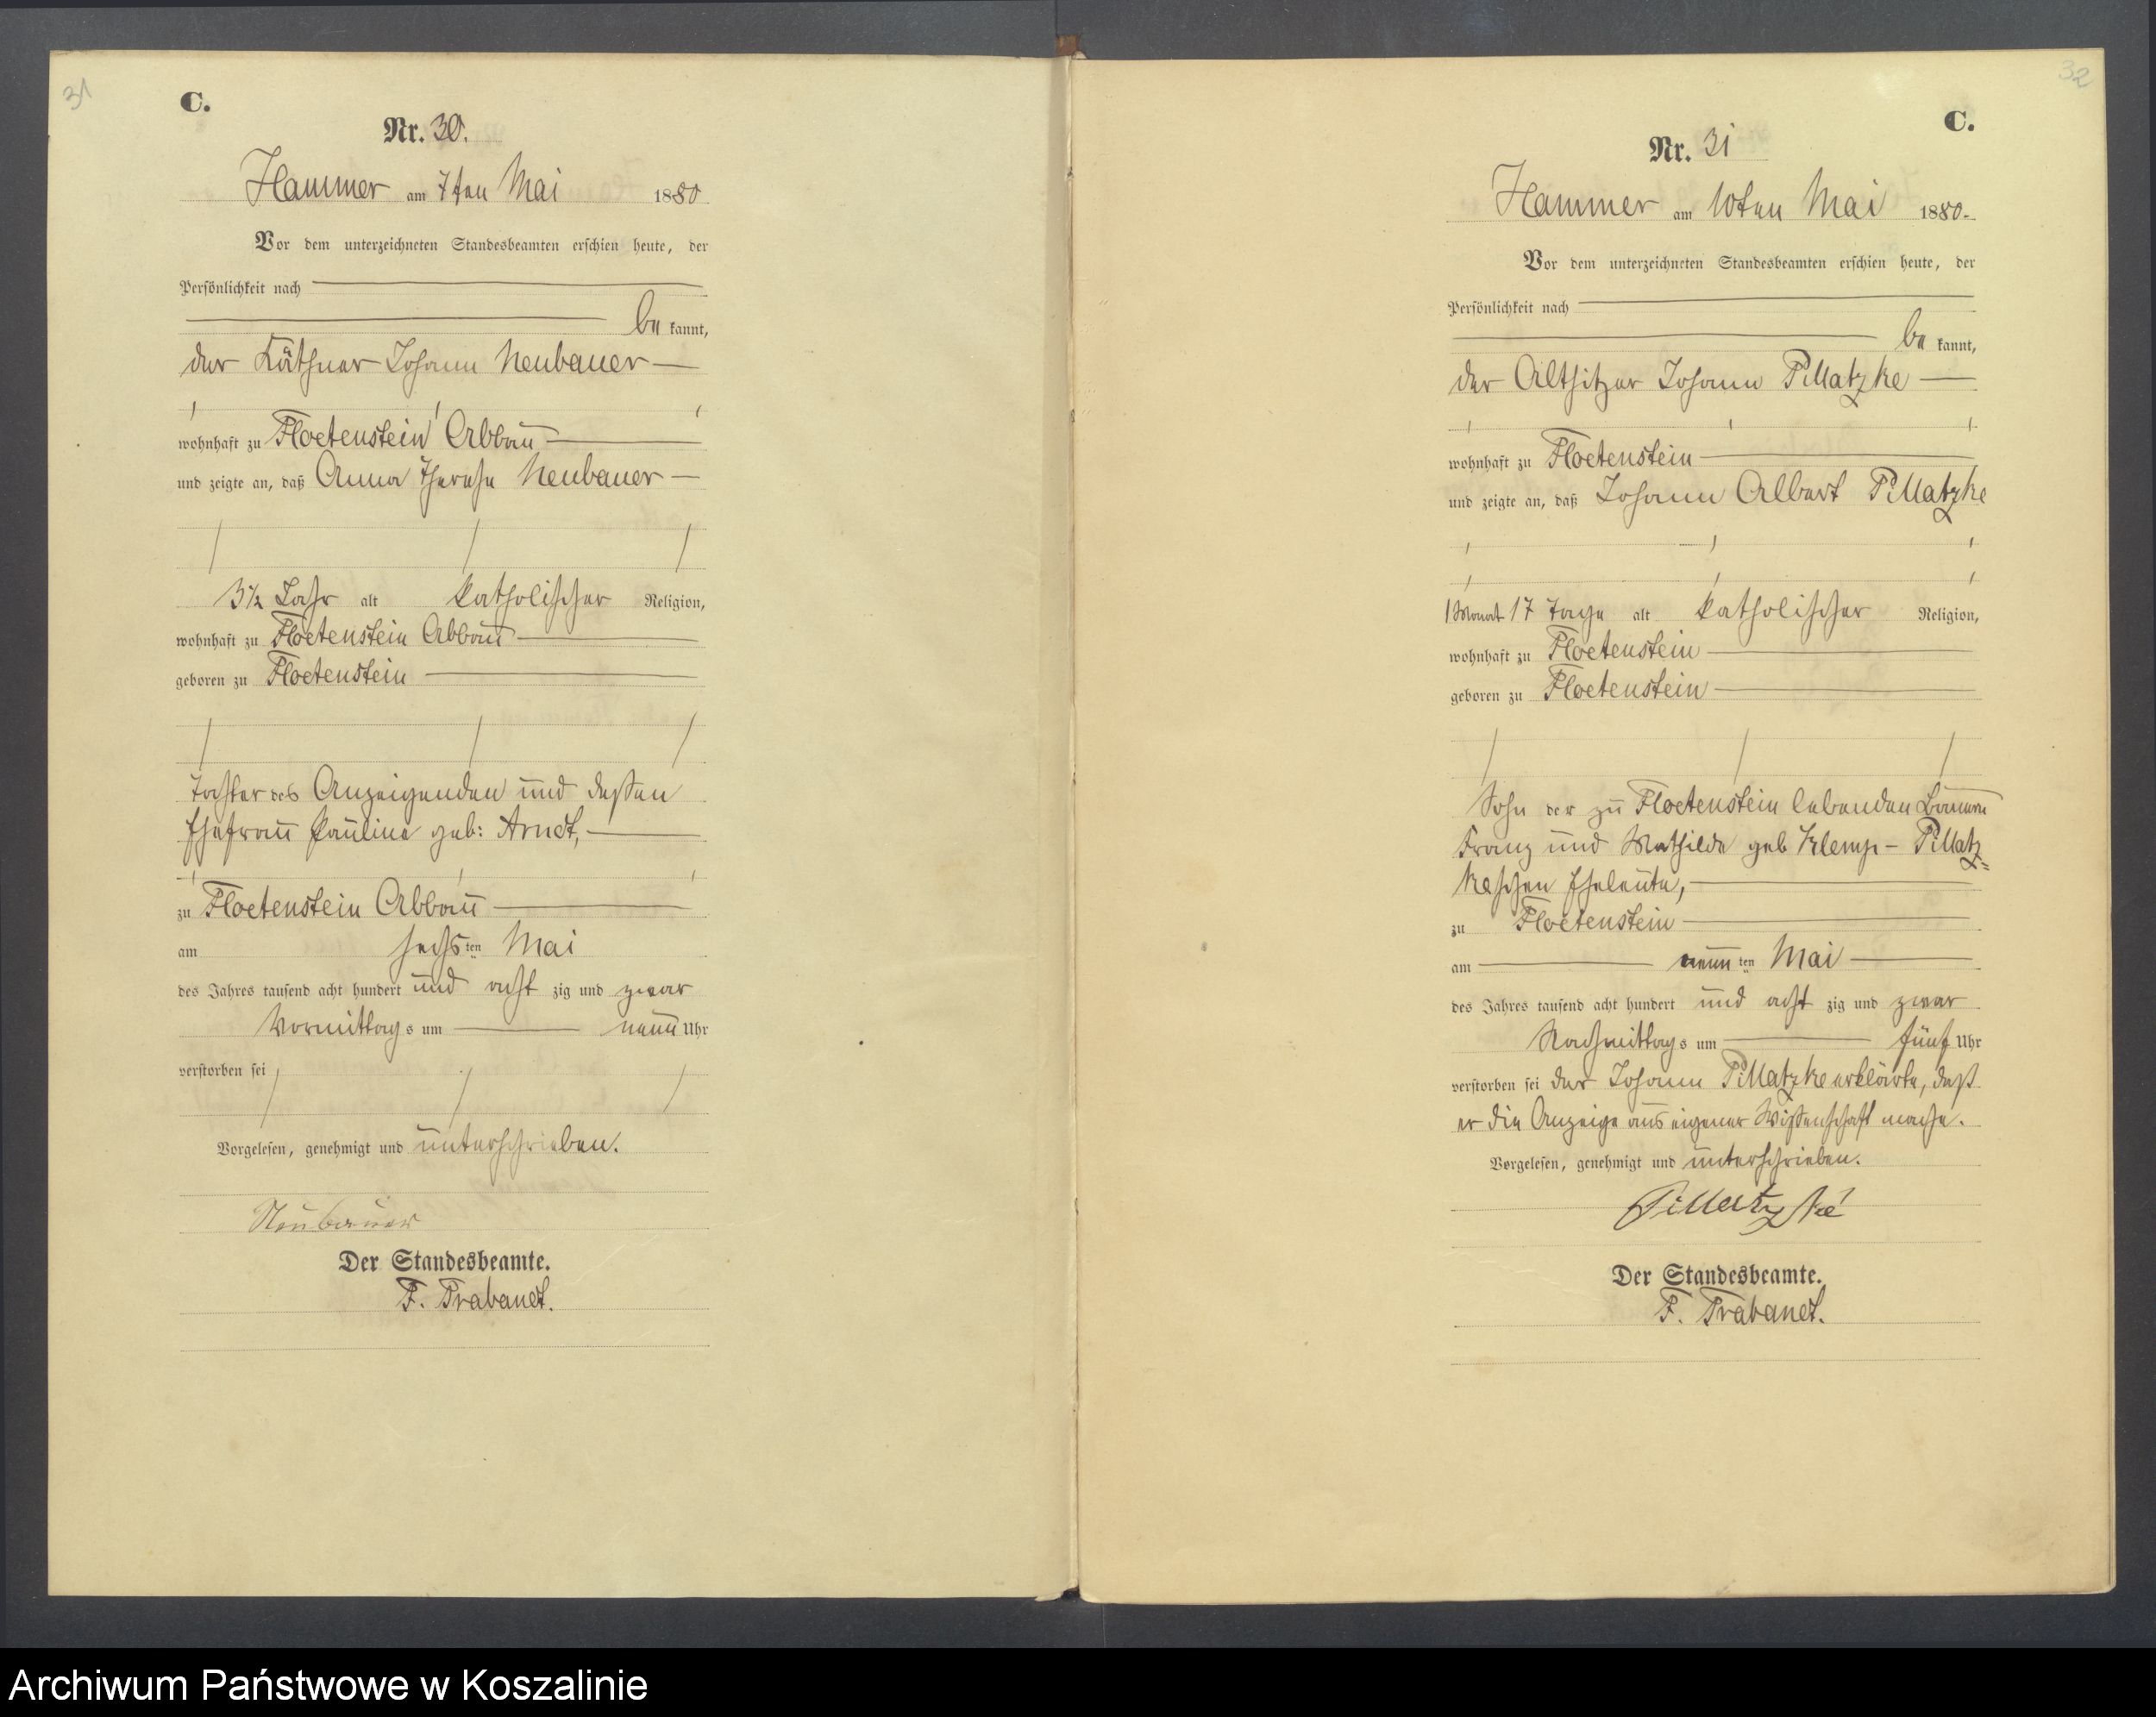 31
C.
Nr. 30.
Hammer am 7ten Mai 1880
Vor dem unterzeichneten Standesbeamten erschien heute, der
Persönlichkeit nach
be kannt,
der Käthner Johann Neubauer
wohnhaft zu Floetenstein Abbau
und zeigte an, daß Anna Therese Neubauer
3½ Jahr alt katholischer Religion,
wohnhaft zu Floetenstein Abbau
geboren zu Floetenstein
Tochter des Anzeigenden und dessen
Ehefrau Pauline geb: Arndt,
zu Floetenstein Abbau
am sechsten Mai
des Jahres tausend acht hundert und acht zig und zwar
Vormittags um neun Uhr
verstorben sei
Vorgelesen, genehmigt und unterschrieben.
Neubauer
Der Standesbeamte.
F. Trabandt.
32
C.
Nr. 31
Hammer am 10ten Mai 1880.
Vor dem unterzeichneten Standesbeamten erschien heute, der
Persönlichkeit nach
be kannt,
der Altsitzer Johann Pillatzke
wohnhaft zu Floetenstein
und zeigte an, daß Johann Albert Pillatzke
1 Monat 17 Tage alt katholischer Religion,
wohnhaft zu Floetenstein
geboren zu Floetenstein
Sohn der zu Floetenstein lebenden Bauern
Franz und Mathilde geb Klemp - Pillatz=
keschen Eheleute,
zu Floetenstein
am neunten Mai
des Jahres tausend acht hundert und acht zig und zwar
Nachmittags um fünf Uhr
verstorben sei der Johann Pillatzke erklärte, daß
er die Anzeige aus eigener Wissenschaft mache.
Vorgelesen, genehmigt und unterschrieben.
Pillatzke
Der Standesbeamte.
F. Trabandt.
Archiwum Państwowe w Koszalinie